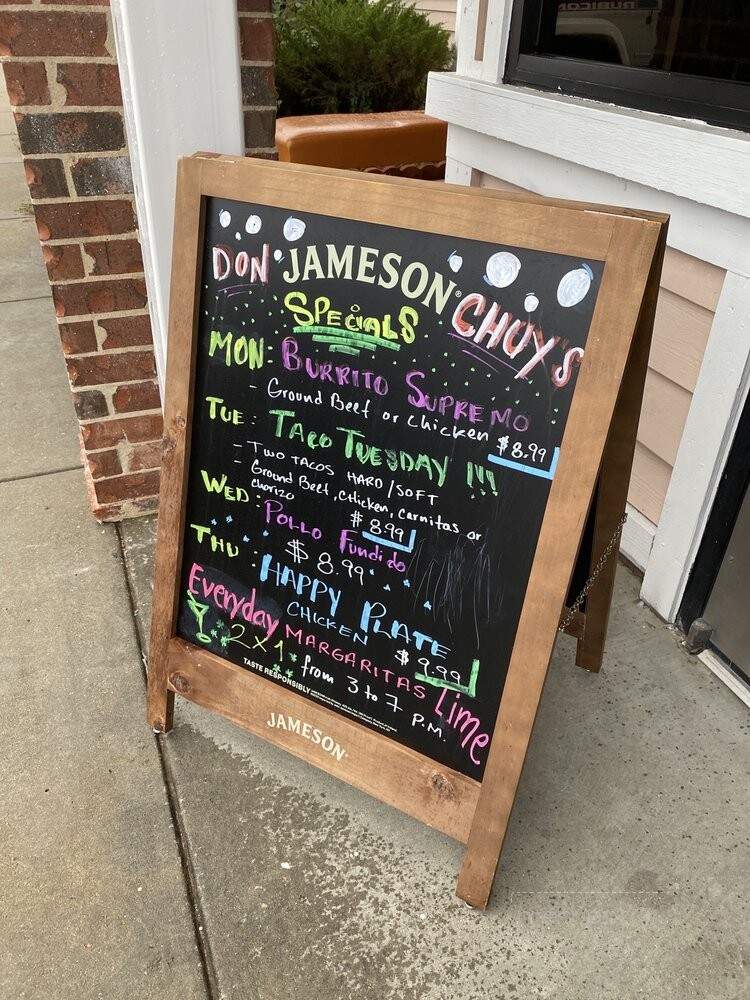 RUBICON
DON JAMESON® CHUY'S
SPECIALS
MON: BURRITO SUPREMO
- Ground Beef or Chicken $8.99
TUE: TACO TUESDAY !!!
- TWO TACOS HARD/SOFT
Ground Beef, Chicken, Carnitas or
chorizo $8.99
WED: POLLO Fundido
$8.99
THU: HAPPY PLATE
CHICKEN $9.99
Everyday MARGARITAS Lime
2X1 from 3 to 7 P.M.
TASTE RESPONSIBLY
JAMESON®